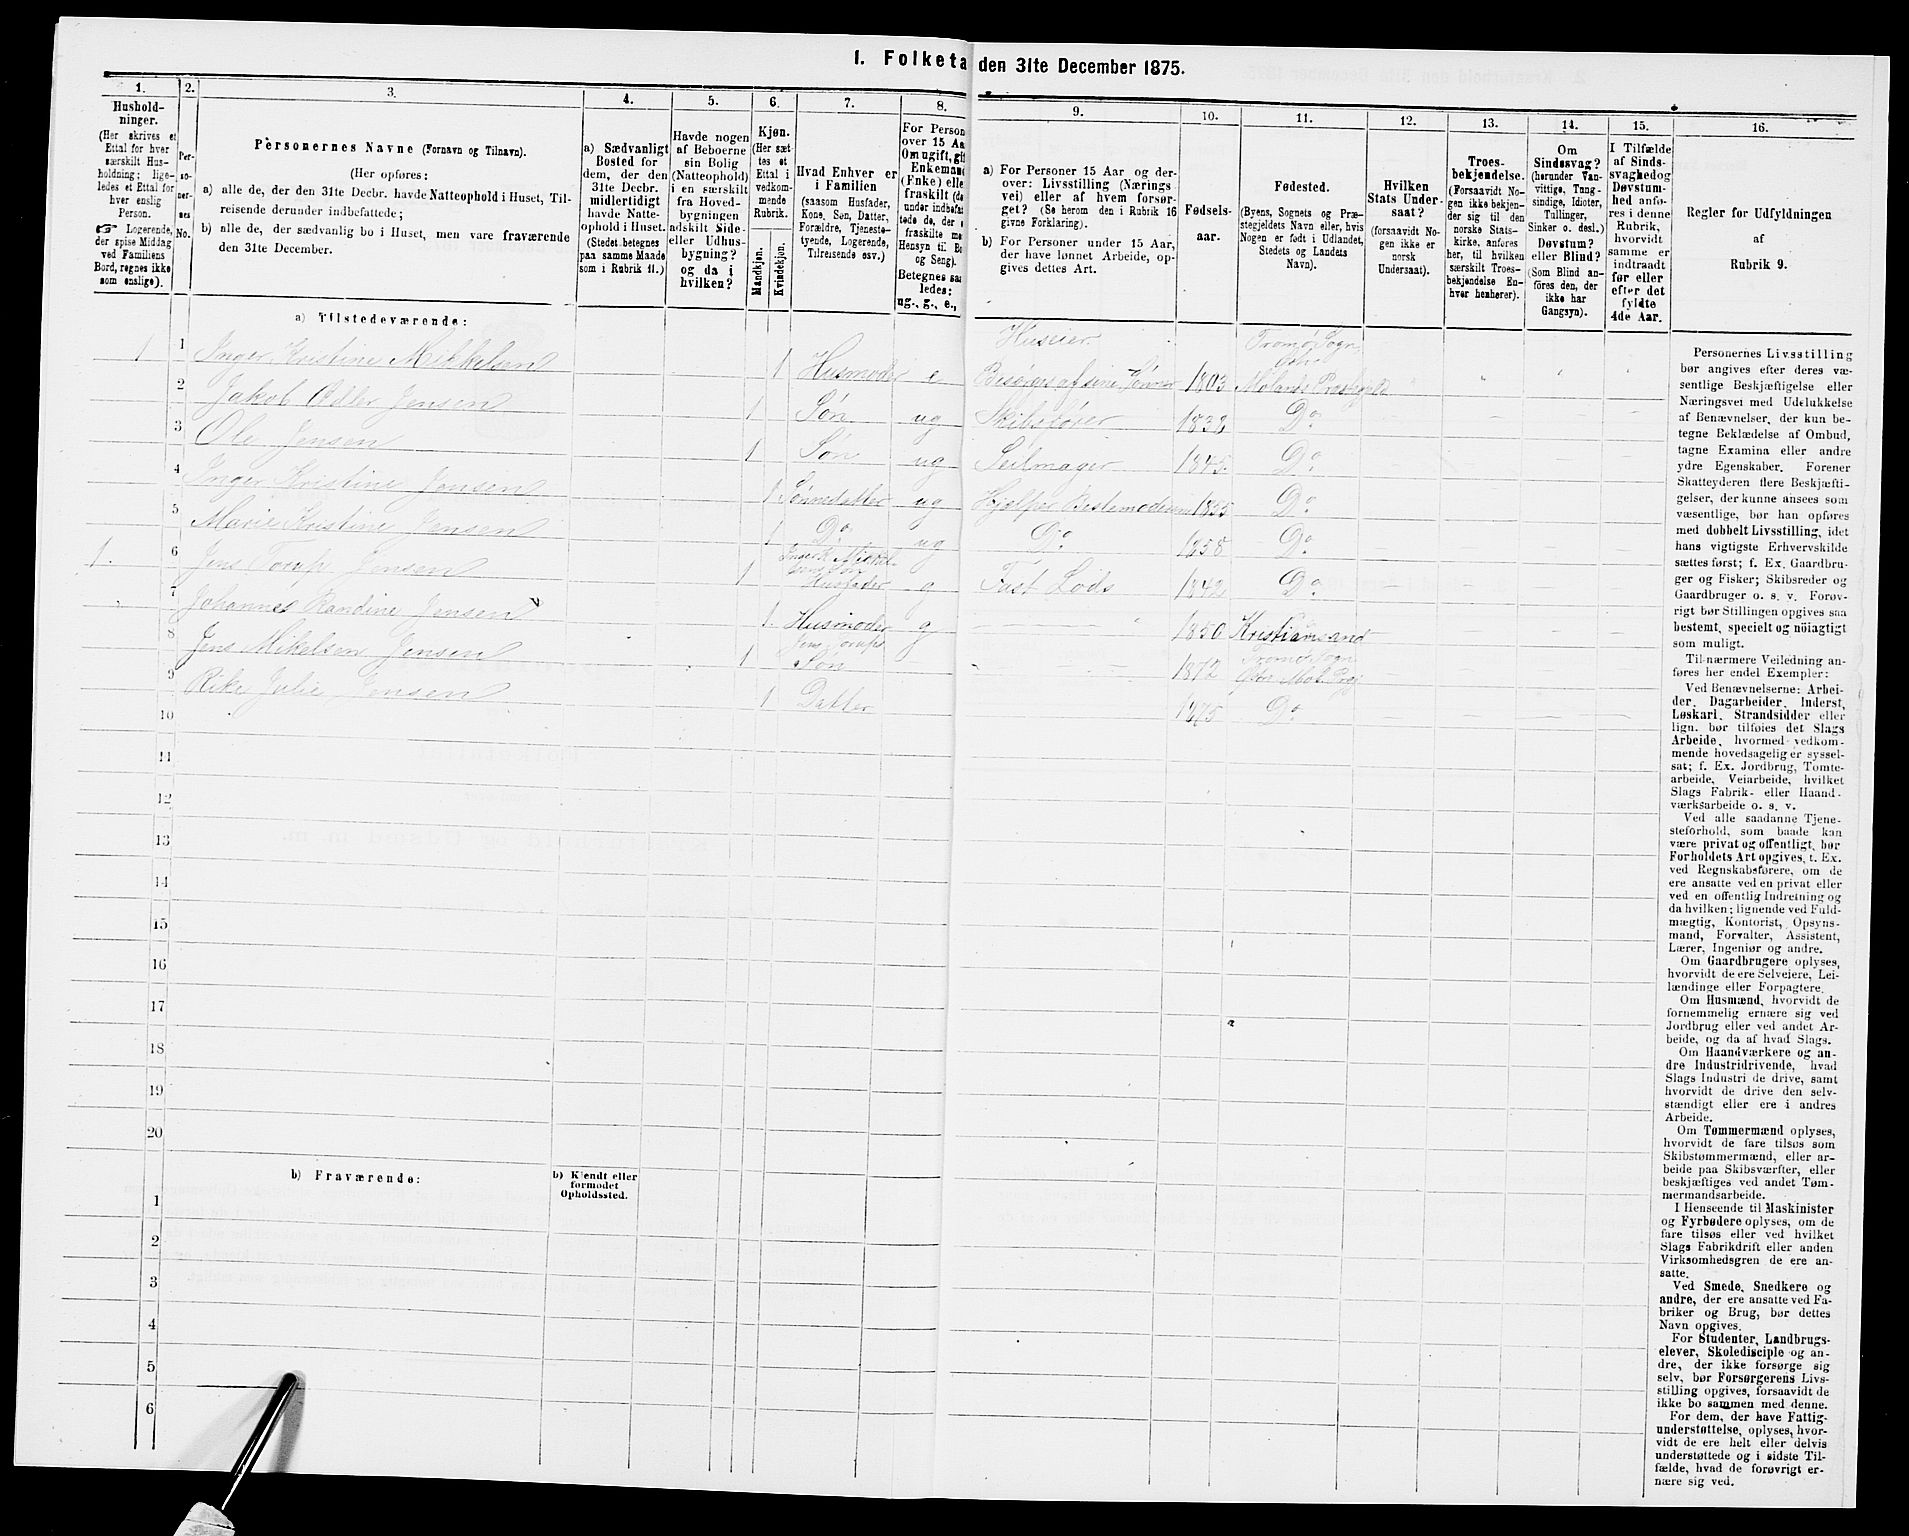 1. Folketa den 31te December 1875.
1. 2. 3. 4. 5. 6. 7. 8. 9. 10. 11. 12. 13. 14. 15. 16.
Hushold-
ninger.
(Her skrives et
Ettal for hver
særskilt Hus-
holdning; lige-
ledes et Ettal for
hver enslig
Person.
☞ Logerende,
der spise Middag
ved Familiens
Bord, regnes ikke
som enslige).
Per-
so-
ner-
nes
No.
Personernes Navne (Fornavn og Tilnavn).
(Her opføres:
a) alle de, der den 31te Decbr. havde Natteophold i Huset, Til-
reisende derunder indbefattede;
b) alle de, der sædvanlig bo i Huset, men vare fraværende
den 31te December.
a) Sædvanligt
Bosted for
dem, der den
31te Decbr.
midlertidigt
havde Natte-
ophold i Huset.
(Stedet betegnes
paa samme Maade
som i Rubrik 11.)
Havde nogen
af Beboerne
sin Bolig
(Natteophold)
i en særskilt
fra Hoved-
bygningen
adskilt Side-
eller Udhus-
bygning?
og da i
hvilken?
Kjøn.
(Her sæt-
tes et
Ettal i
vedkom-
mende
Rubrik.
Mandkjøn.
Kvindekjøn.
Hvad Enhver er
i Familien
(saasom Husfader,
Kone, Søn, Datter,
Forældre, Tjeneste-
tyende, Logerende,
Tilreisende osv.)
For Person
over 15 Aa
Om ugift, gif
Enkeman
(Enke) elle
fraskilt (de
under indbefat
tede de, der e
fraskilte me
Hensyn til Bo
og Seng).
Betegnes saa
ledes:
ug., g., e.,
a) For Personer 15 Aar og der-
over: Livsstilling (Nærings
vei) eller af hvem forsør-
get? (Se herom den i Rubrik 16
givne Forklaring).
b) For Personer under 15 Aar,
der have lønnet Arbeide, op-
gives dettes Art.
Fødsels-
aar.
Fødested.
(Byens, Sognets og Præ-
stegjeldets Navn eller, hvis
Nogen er født i Udlandet,
Stedets og Landets
Navn).
Hvilken
Stats Under-
saat?
(forsaavidt No-
gen ikke er
norsk
Undersaat).
Troes-
bekjendelse.
(Forsaavidt No-
gen ikke bekjen-
der sig til den
norske Stats-
kirke, anføres
her, til hvilken
særskilt Troes-
bekjendelse En-
hver henhører).
Om
Sindssvag?
(herunder Van-
vittige, Tung-
sindige, Idioter,
Tullinger,
Sinker o. desl.)
Døvstum?
eller Blind?
(Som Blind an-
føres den, der
ikke har
Gangsyn).
I Tilfælde
af Sinds-
svaghed og
Døvstum-
hed anfø-
res i denne
Rubrik,
hvorvidt
samme er
indtraadt
før eller
efter det
fyldte
4de Aar.
Regler for Udfyldningen
af
Rubrik 9.
a) Tilstedeværende:
Huseier Tromø Sogn
1 1 Inger Kristine Mikkelsen 1 Husmoder e Besørges af sine Sønner 1803
2 Jakob Odler Jensen 1 Søn ug Skibsfører 1838 Do
3 Ole Jensen 1 Søn ug Seilmager 1845. Do
4 Inger Kristine Jensen 1 Sønnedatter ug Hjælper Bestemoderen 1855 Do
5 Marie Kristine Jensen 1 Do ug Do 1858 Do
1. 6 Jens Torup Jensen 1 Husfader g Fast Lods 1842 Do
7 Johannes Randine Jensen 1. Husmoder g 1850 Kristiansand
Jens Torups Tromø Sogn
8 Jens Mikelsen Jensen 1 Søn 1872 Østr. Mol. Prgj
9 Rike Julie Jensen 1 Datter 1875 Do
10
11
12
13
14
15
16
17
18
19
20
b) Fraværende: b) Kjendt eller
formodet
Opholdssted.
1
2
3
4
5
6
Personernes Livsstilling
bør angives efter deres væ-
sentlige Beskjæftigelse eller
Næringsvei med Udelukkelse
af Benævnelser, der kun be-
tegne Beklædelse af Ombud,
tagne Examina eller andre
ydre Egenskaber. Forener
Skatteyderen flere Beskjæfti-
gelser, der kunne ansees som
væsentlige, bør han opføres
med dobbelt Livsstilling, idet
hans vigtigste Erhvervskilde
sættes først; f. Ex. Gaardbru-
ger og Fisker; Skibsreder og
Gaardbruger o. s. v. Forøv-
rigt bør Stillingen opgives saa
bestemt, specielt og nöiagtigt
som muligt.
Til nærmere Veiledning an-
føres her endel Exempler:
Ved Benævnelserne: Arbei-
der, Dagarbeider, Inderst,
Løskarl, Strandsidder eller
lign. bør tilføies det Slags
Arbeide, hvormed vedkom-
mende hovedsagelig er syssel-
sat; f. Ex. Jordbrug, Tomte-
arbeide, Veiarbeide, hvilket
Slags Fabrik- eller Haand-
værksarbeide o. s. v.
Ved alle saadanne Tjene-
steforhold, som baade kan
være privat og offentligt, bør
Forholdets Art opgives, t. Ex.
ved Regnskabsførere, om de
ere ansatte ved en privat eller
ved en offentlig Indretning og
da hvilken; lignende ved Fuld-
mægtig, Kontorist, Opsyns-
mand, Forvalter, Assistent,
Lærer, Ingeniør og andre.
Om Gaardbrugere oplyses,
hvorvidt de ere Selveiere, Lei-
lændinge eller Forpagtere.
Om Husmænd, hvorvidt de
fornemmelig ernære sig ved
Jordbrug eller ved andet Ar-
beide, og da af hvad Slags.
Om Haandværkere og an-
dre Industridrivende, hvad
Slags Industri de drive, samt
hvorvidt de drive den selv-
stændigt eller ere i andres
Arbeide.
Om Tømmermænd oplyses,
hvorvidt de fare tilsøs som
Skibstømmermænd, eller ar-
beide paa Skibsværfter, eller
beskjæftiges ved andet Tøm-
mermandsarbeide.
I Henseende til Maskinister
og Fyrbødere oplyses, om de
fare tilsøs eller ved hvilket
Slags Fabrikdrift eller anden
Virksomhedsgren de ere an-
satte.
Ved Smede, Snedkere og
andre, der ere ansatte ved Fa-
briker og Brug, bør dettes
Navn opgives.
For Studenter, Landbrugs-
elever, Skoledisciple og an-
dre, der ikke forsørge sig
selv, bør Forsørgerens Livs-
stilling opgives, forsaavidt de
ikke bo sammen med denne.
For dem, der have Fattig-
understøttelse, oplyses, hvor-
vidt de ere helt eller delvis
understøttede og i sidste Til-
fælde, hvad de forøvrigt er-
nære sig ved.